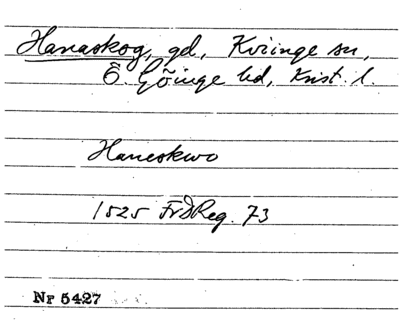 Hanaskog, gd, Kviinge sn,
Ö. Göinge hd, Krist. l.
Haneskwo
1525 FrDReg. 73
Nr 5427